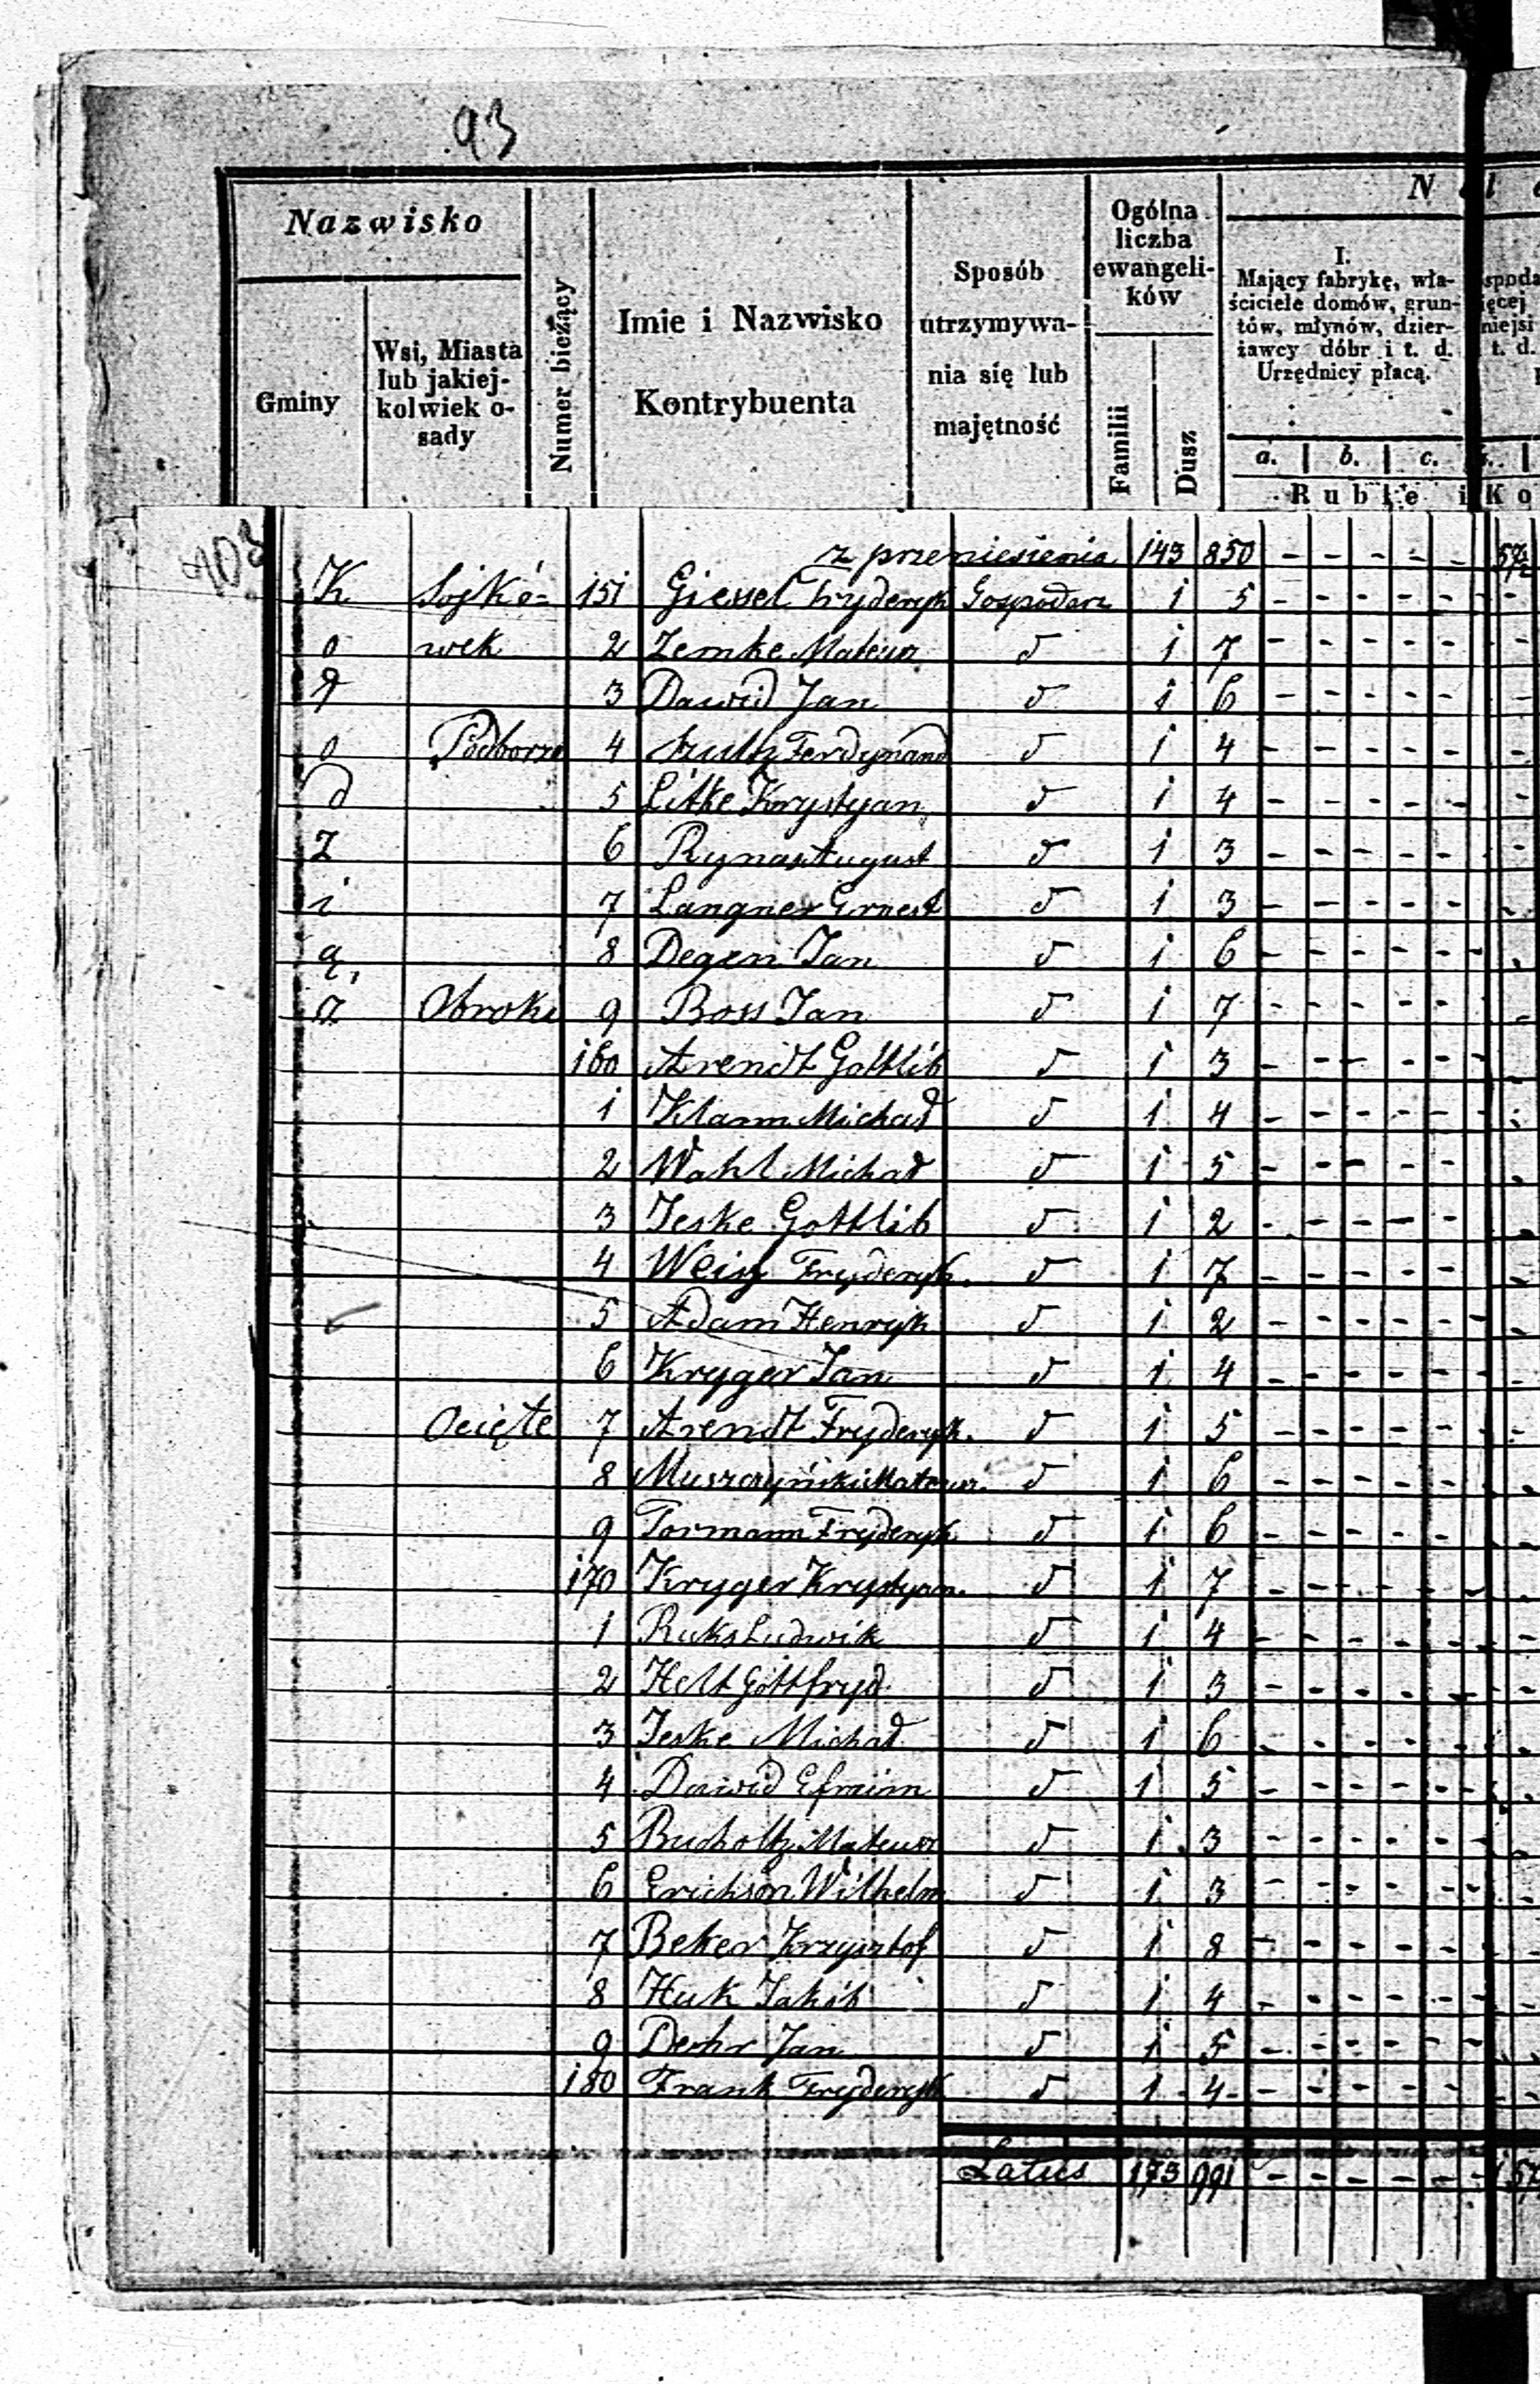 93
Nazwisko
Gminy
Wsi, Miasta
lub jakiej-
kolwiek o-
sady
Numer bieżący
Imie i Nazwisko
Kontrybuenta
Sposób
utrzymywa-
nia się lub
majętność
Ogólna
liczba
ewangeli-
ków
Familii
Dusz
I.
Mający fabrykę, wła-
ściciele domów, grun-
tów, młynów, dzier-
żawcy dóbr i t. d.
Urzędnicy płacą.
a. b. c.
403
z przeniesienia 143 850 - - - - -
K Sojkó- 151 Giessel Fryderyk Gospodarz 1 5 - - - - -
o wek 2 Zemke Mateusz d 1 7 - - - - -
3 Dawid Jan d 1 6 - - - - -
o Podborze 4 Szultz Ferdynand d 1 4 - - - - -
d 5 Litke Krystyan d 1 4 - - - - -
z 6 Rynas August d 1 3 - - - - -
i 7 Langner Ernest d 1 3 - - - - -
ą 8 Degen Jan d 1 6 - - - - -
Obroki 9 Boss Jan d 1 7 - - - - -
160 Arendt Gottlib d 1 3 - - - - -
1 Klamm Michał d 1 4 - - - - -
2 Wahl Michał d 1 5 - - - - -
3 Jeske Gottlib d 1 2 - - - - -
4 Weisz Fryderyk. d 1 7 - - - - -
5 Adam Henryk d 1 2 - - - - -
6 Kryger Jan d 1 4 - - - - -
Ocięte 7 Arendt Fryderyk. d 1 5 - - - - -
8 Muszczyński Mateusz. d 1 6 - - - - -
9 Tormann Fryderyk d 1 6 - - - - -
170 Kryger Krystyan. d 1 7 - - - - -
1 Ruks Ludwik d 1 4 - - - - -
2 Helt Gottfryd d 1 3 - - - - -
3 Jeske Michał d 1 6 - - - - -
4 Dawid Efraim d 1 5 - - - - -
5 Bucholtz Mateusz d 1 3 - - - - -
6 Erichson Wilhelm d 1 3 - - - - -
7 Beker Krzysztof d 1 8 - - - - -
8 Huk Jakób d 1 4 - - - - -
9 Jan d 1 5 - - - - -
180 Frank Fryderyk d 1 4 - - - - -
Latus 173 991 - - - - -